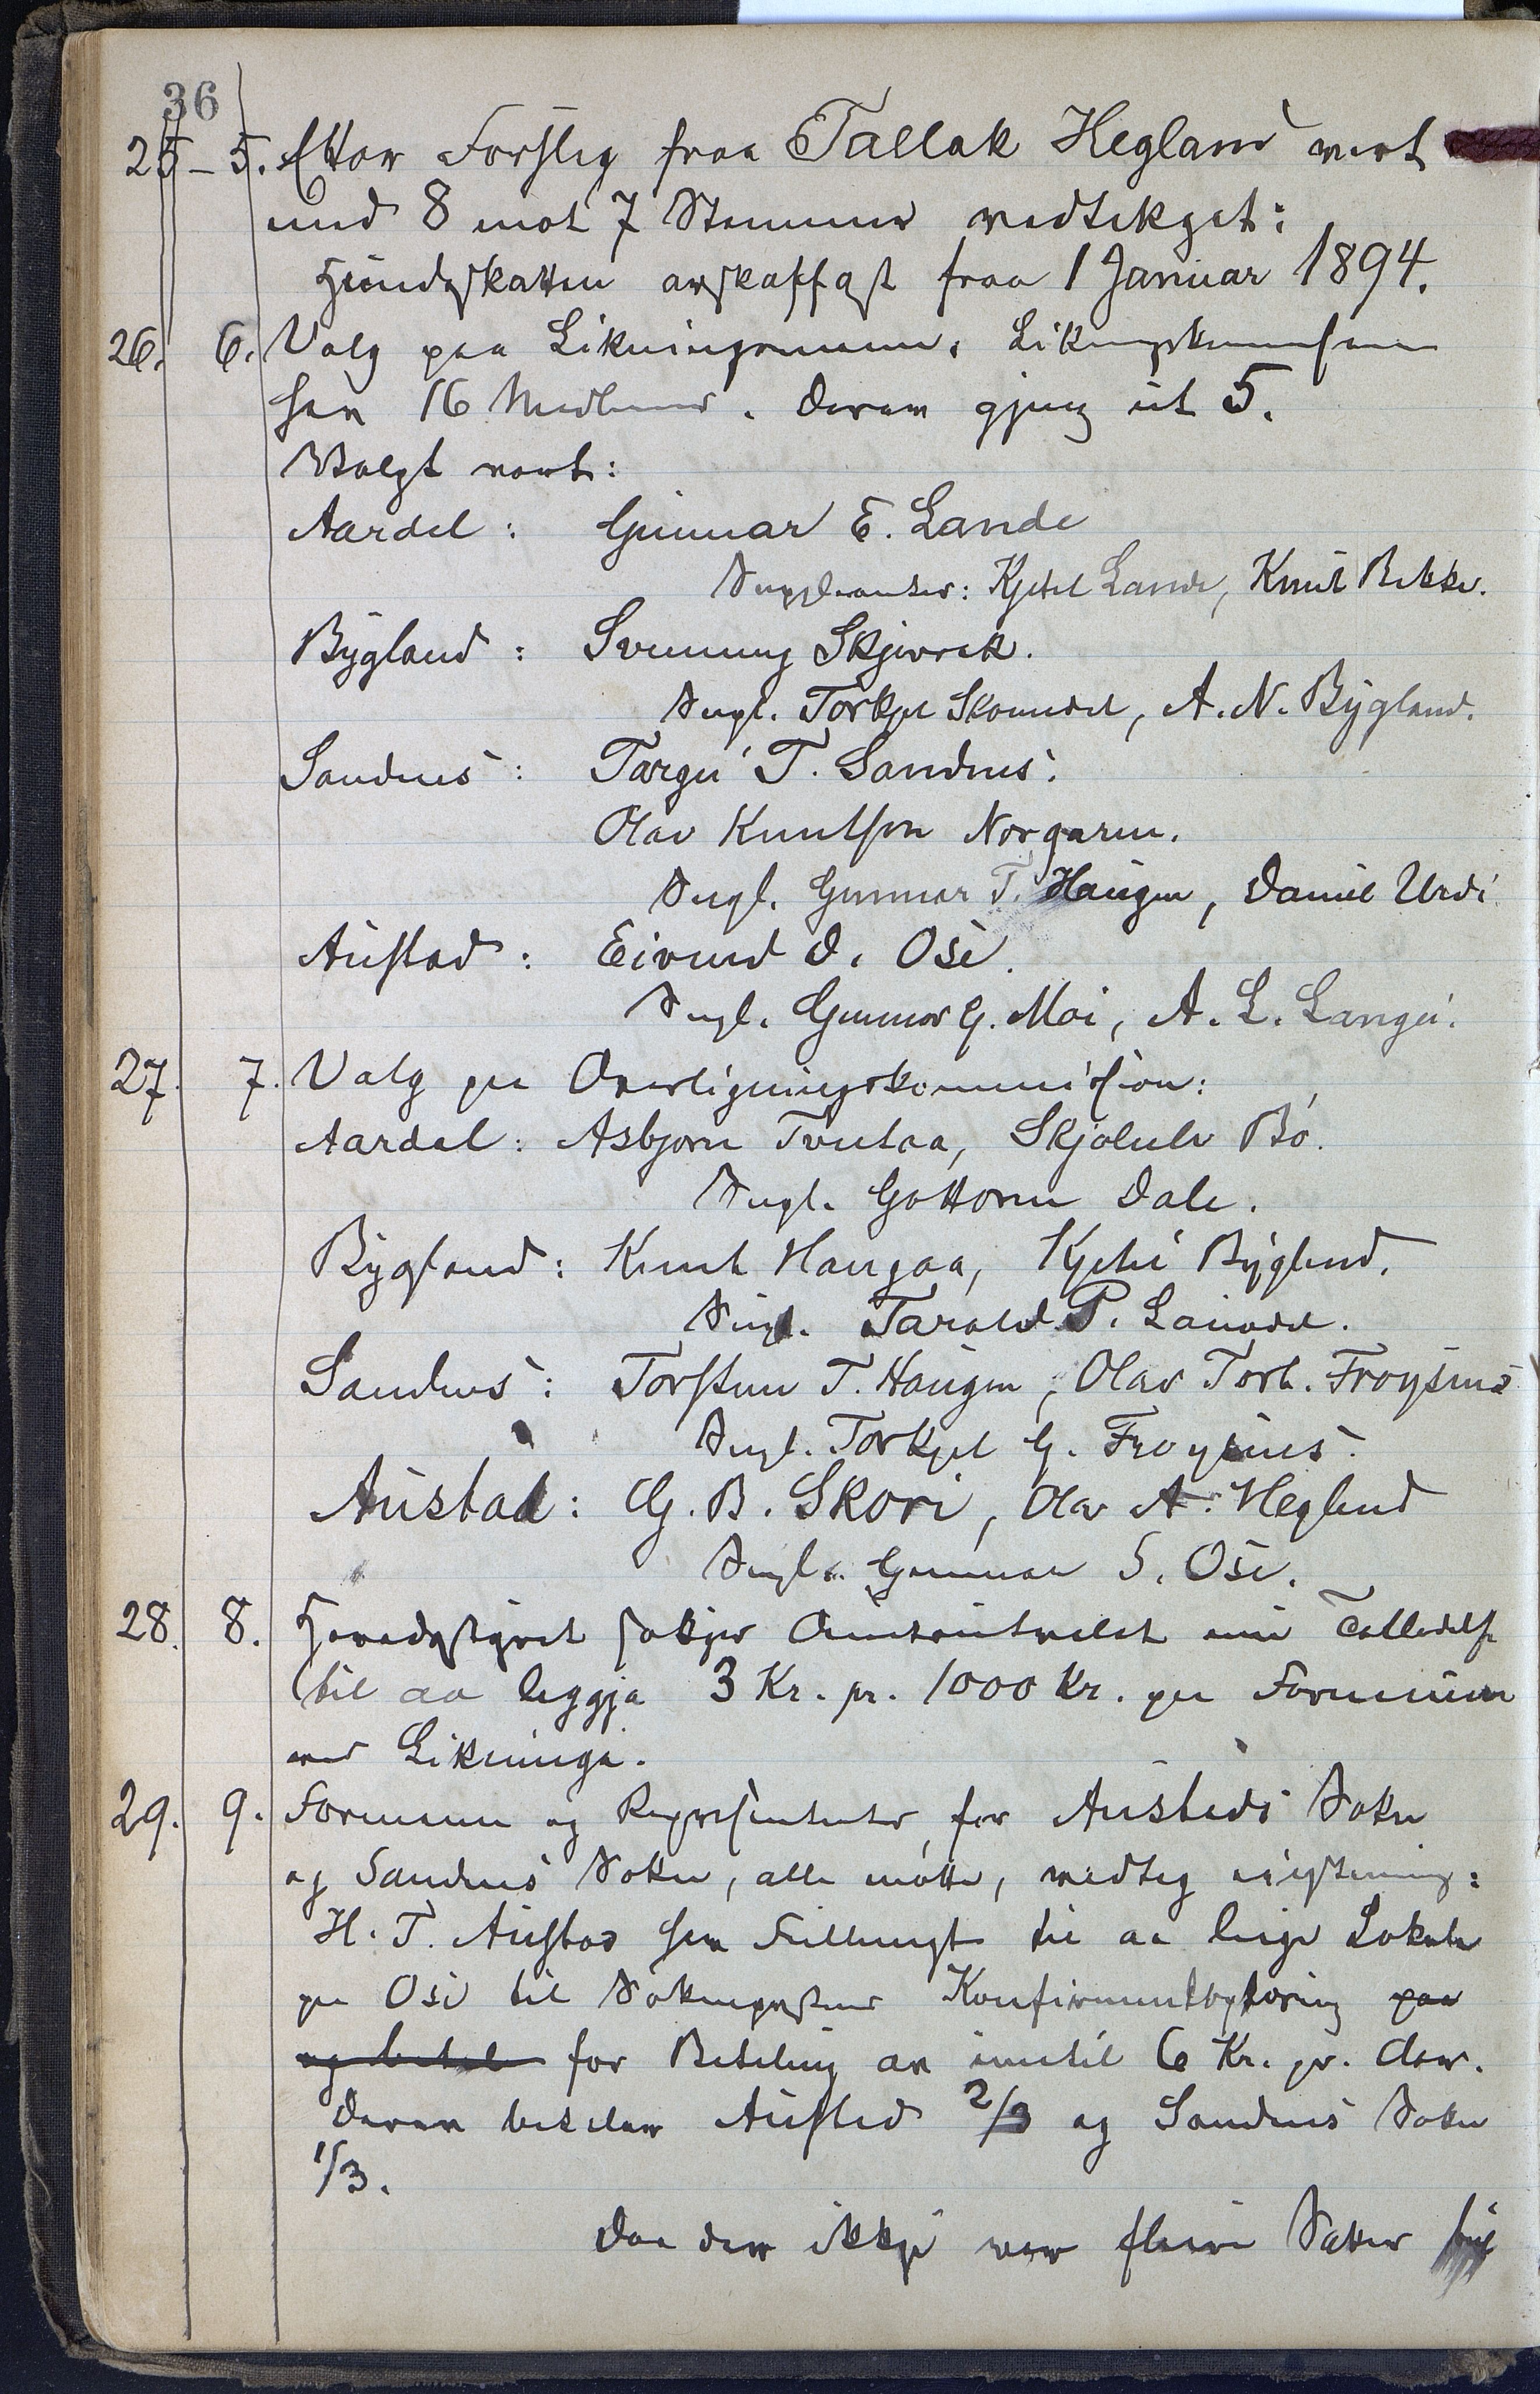 36
25 - 5. Etter Forslag fraa Tallak Hegland vart
med 8 mot 7 Stemmer vedtekjet:
Hundeskatten avskaffast fraa 1 Januar 1894.
26. 6. Valg paa Likningsmenn. Likningskommisjonen
har 16 Medlemer. Derav gjeng ut 5.
Valgt vart:
Aardal: Gunnar E. Lande
Suppleanter: Kjetel Lande, Knut Bekke.
Bygland: Svenung Skjevrak.
Supl. Torkjel Skomedal, A. N. Bygland.
Sandnes: Targei T. Sandnes.
Olav Knutson Norgaren.
Supl. Gunnar T. Haugen, Daniel Urdi
Austad: Eivind D. Ose.
Supl. Gunnar G. Moi, A. L. Langei.
27. 7. Valg paa Overligningskommission:
Aardal: Asbjorn Tveitaa, Skjolulv Bö.
Supl. Gottorm Dale.
Bygland: Knut Haugaa, Kjetil Bygland.
Supl. Tarald P. Lauvdal.
Sandnes: Torsten T. Haugen, Olav Torb. Froysnes
Supl. Torkjel G. Froysnes.
Austad: G. B. Skori, Olav A. Hegland
Supl. Gunnar S. Ose.
28. 8. Heradstyret sokjer Amtsutvalet um Talladelse
til aa leggja 3 Kr. pr. 1000 Kr. paa Formuen
ved Likninga.
29. 9. Formenn og Representanter for Austads Sokn
og Sandnes Sokn, alle møtte, vedtog einstemmig:
H. T. Austad har Fullmagt til aa leige Lokale
paa Ose til Soknepresten Konfirmantlæring paa
og betale for Betaling av inntil 6 Kr. pr. Aar.
Derav betalar Austad 2/3 og Sandnes Sokn
1/3.
Daa der ikkje var fleire Saker